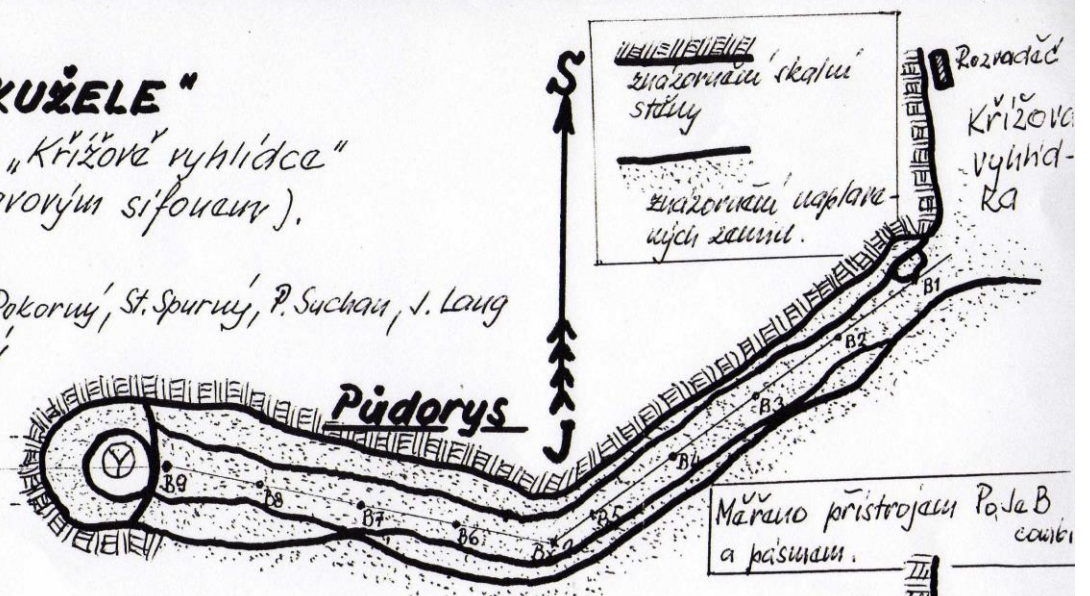 KUŽELE"
„Křížové vyhlídce"
vovým sifonem).
Pokorný, St. Spurný, P. Suchan, J. Lang
Š
J
znázornění skalní
stěny
znázornění naplave-
ných zemin.
Rozvaděč
Křížova
vyhlíd-
ka
Půdorys
B1
B2
B3
B4
B5
B6
B7
B8
B9
Y
Měřeno přístrojem
a pásmem.